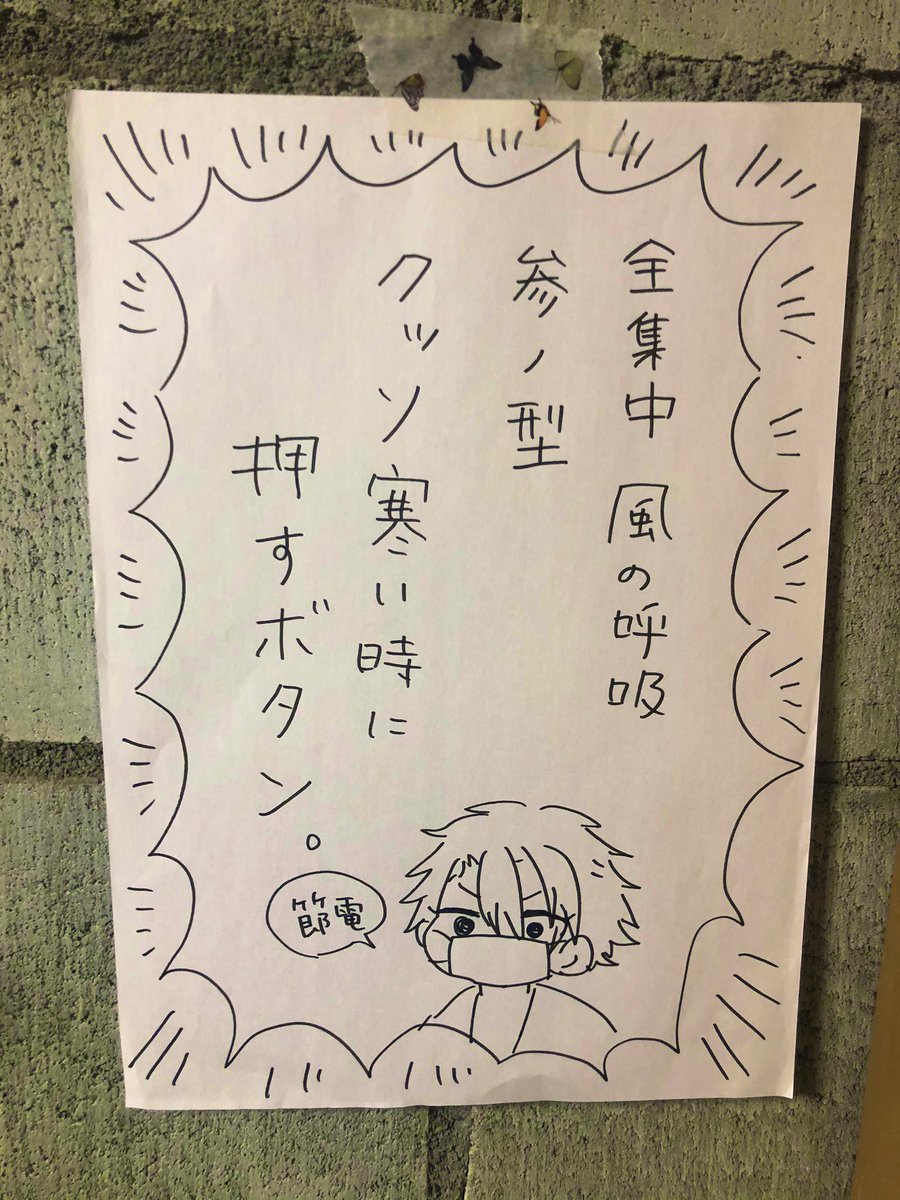 全集中 風の呼吸
参ノ型
クッソ寒い時に
押すボタン。
節電